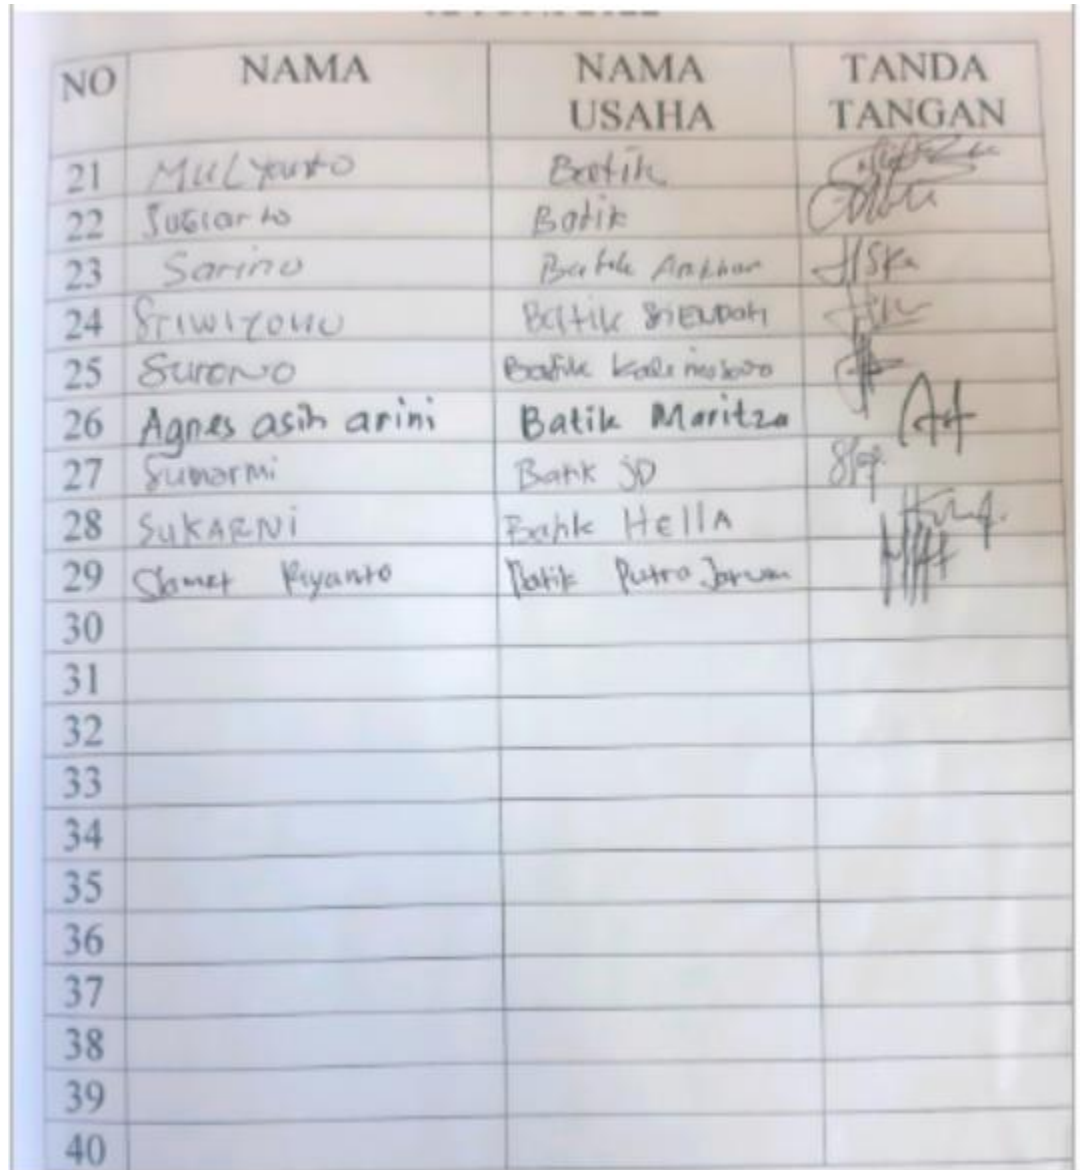 NO NAMA NAMA USAHA TANDA TANGAN
21 Mulyanto Batik
22 Sugiarto Batik
23 Sarino Batik
24 Sriwiyono Batik
25 Surono Batik
26 Agnes asih arini Batik Maritza
27 Sumarmi Batik JD
28 SUKARNi Batik HellA
29 Slamet Riyanto Batik Putra Jarum
30
31
32
33
34
35
36
37
38
39
40